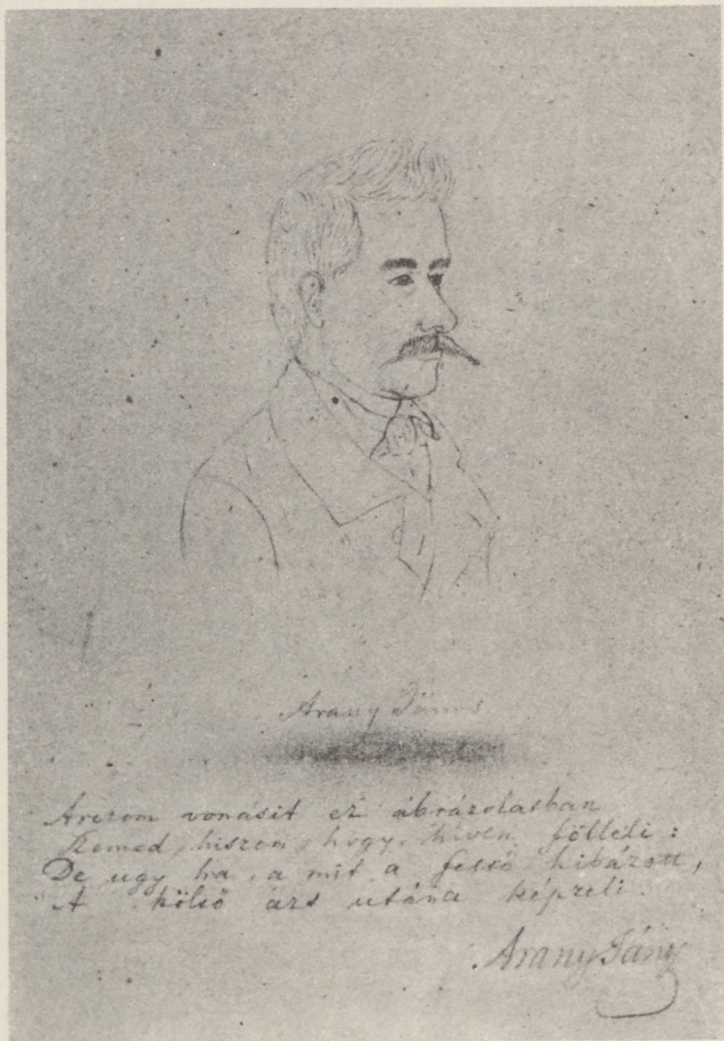 Arany János
Arczom vonásit ez ábrázolásban
Szemed, hiszem, hogy híven fölleli:
De ugy ha, a mit a festő hibázott,
A költő ázs utána képzeli.
Arany János